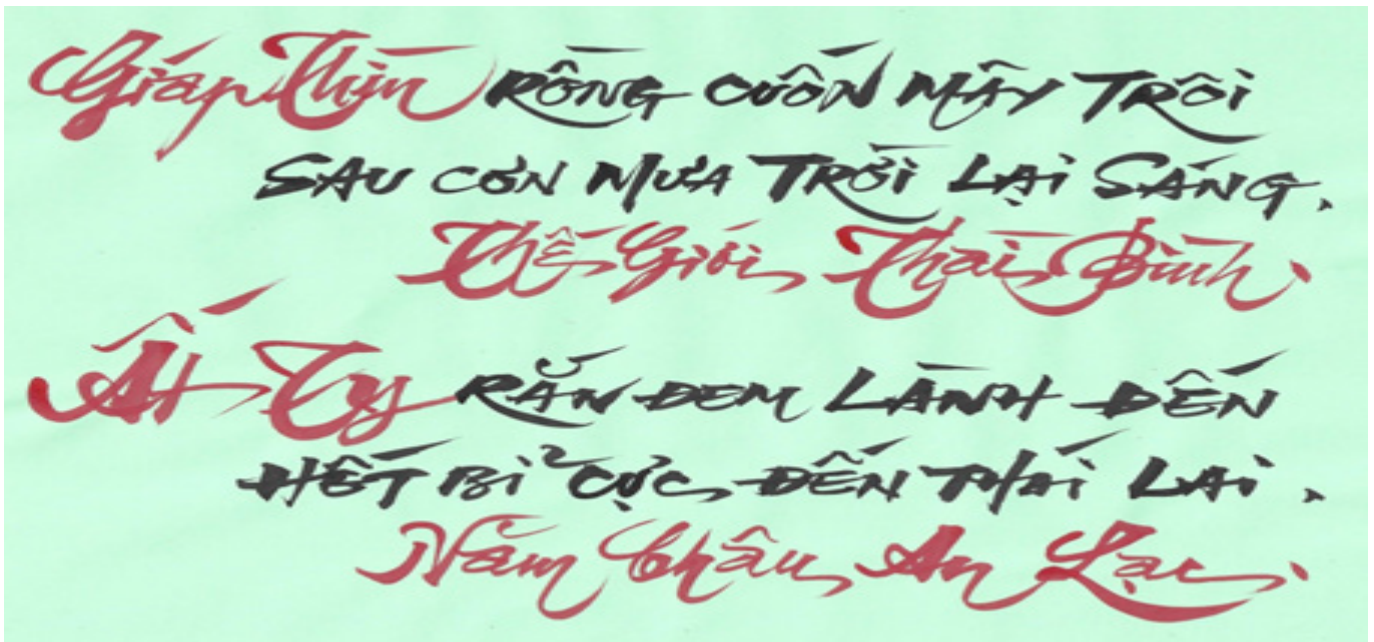 Giáp Thìn RỒNG CUỐN MÂY TRÔI
SAU CƠN MƯA TRỜI LẠI SÁNG,
Thế Giới Thái Bình,
Ất Tỵ RẮN ĐEM LÀNH ĐẾN
HẾT BỈ CỰC ĐẾN THÁI LAI,
Năm Châu An Lạc,